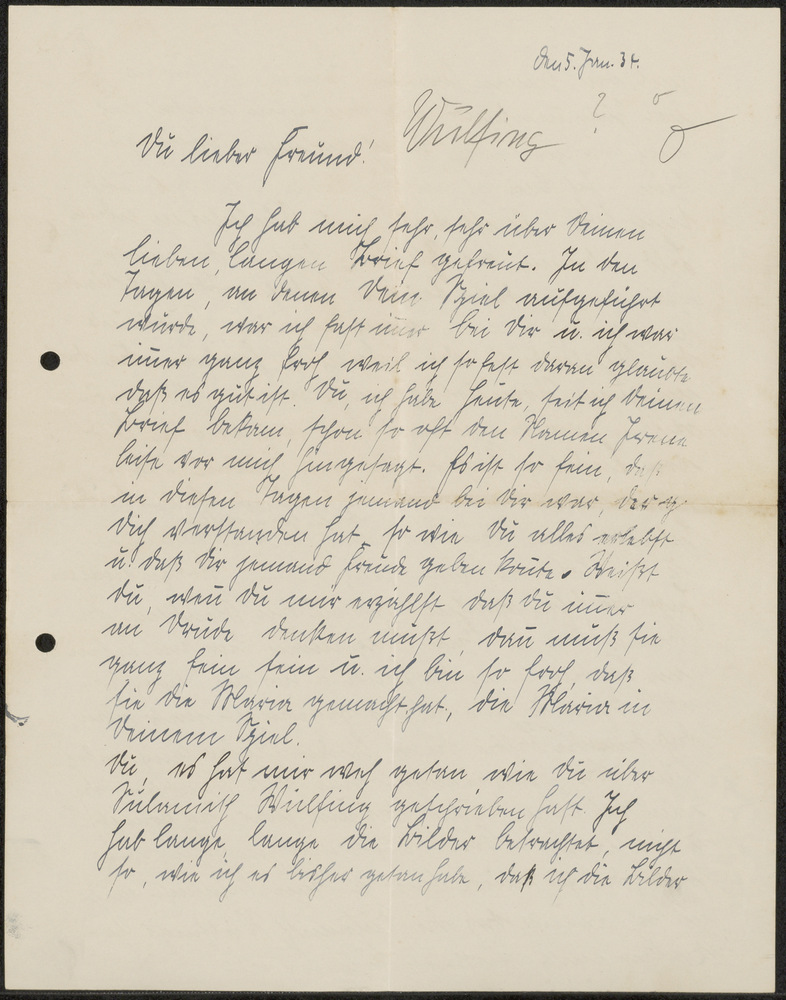 den 5. Jan. 34.
Wülfing ?
Du lieber Freund!
Ich hab mich sehr, sehr über Deinen
lieben, langen Brief gefreut. In den
Tagen, an denen Dein Spiel aufgeführt
wurde, war ich fast im̄er bei Dir u. ich war
im̄er ganz froh weil ich so fest daran glaubte
daß es gut ist. Du, ich habe heute, seit ich Deinen
Brief bekam, schon so oft den Namen Irene
leise vor mich hingesagt. Es ist so fein, daß
in diesen Tagen jemand bei Dir war, der
Dich verstanden hat, so wie Du alles erlebst
u. daß Dir jemand Freude geben kon̄te. Weißt
Du, wen̄ Du mir erzählst daß Du im̄er
an Drude denken mußt, dan̄ muß sie
ganz fein sein u. ich bin so froh, daß
sie die Maria gemacht hat, die Maria in
Deinem Spiel.
Du, es hat mir weh getan wie Du über
Sulamith Wülfing geschrieben hast. Ich
hab lange, lange die Bilder betrachtet, nicht
so, wie ich es bisher getan habe, daß ich die Bilder